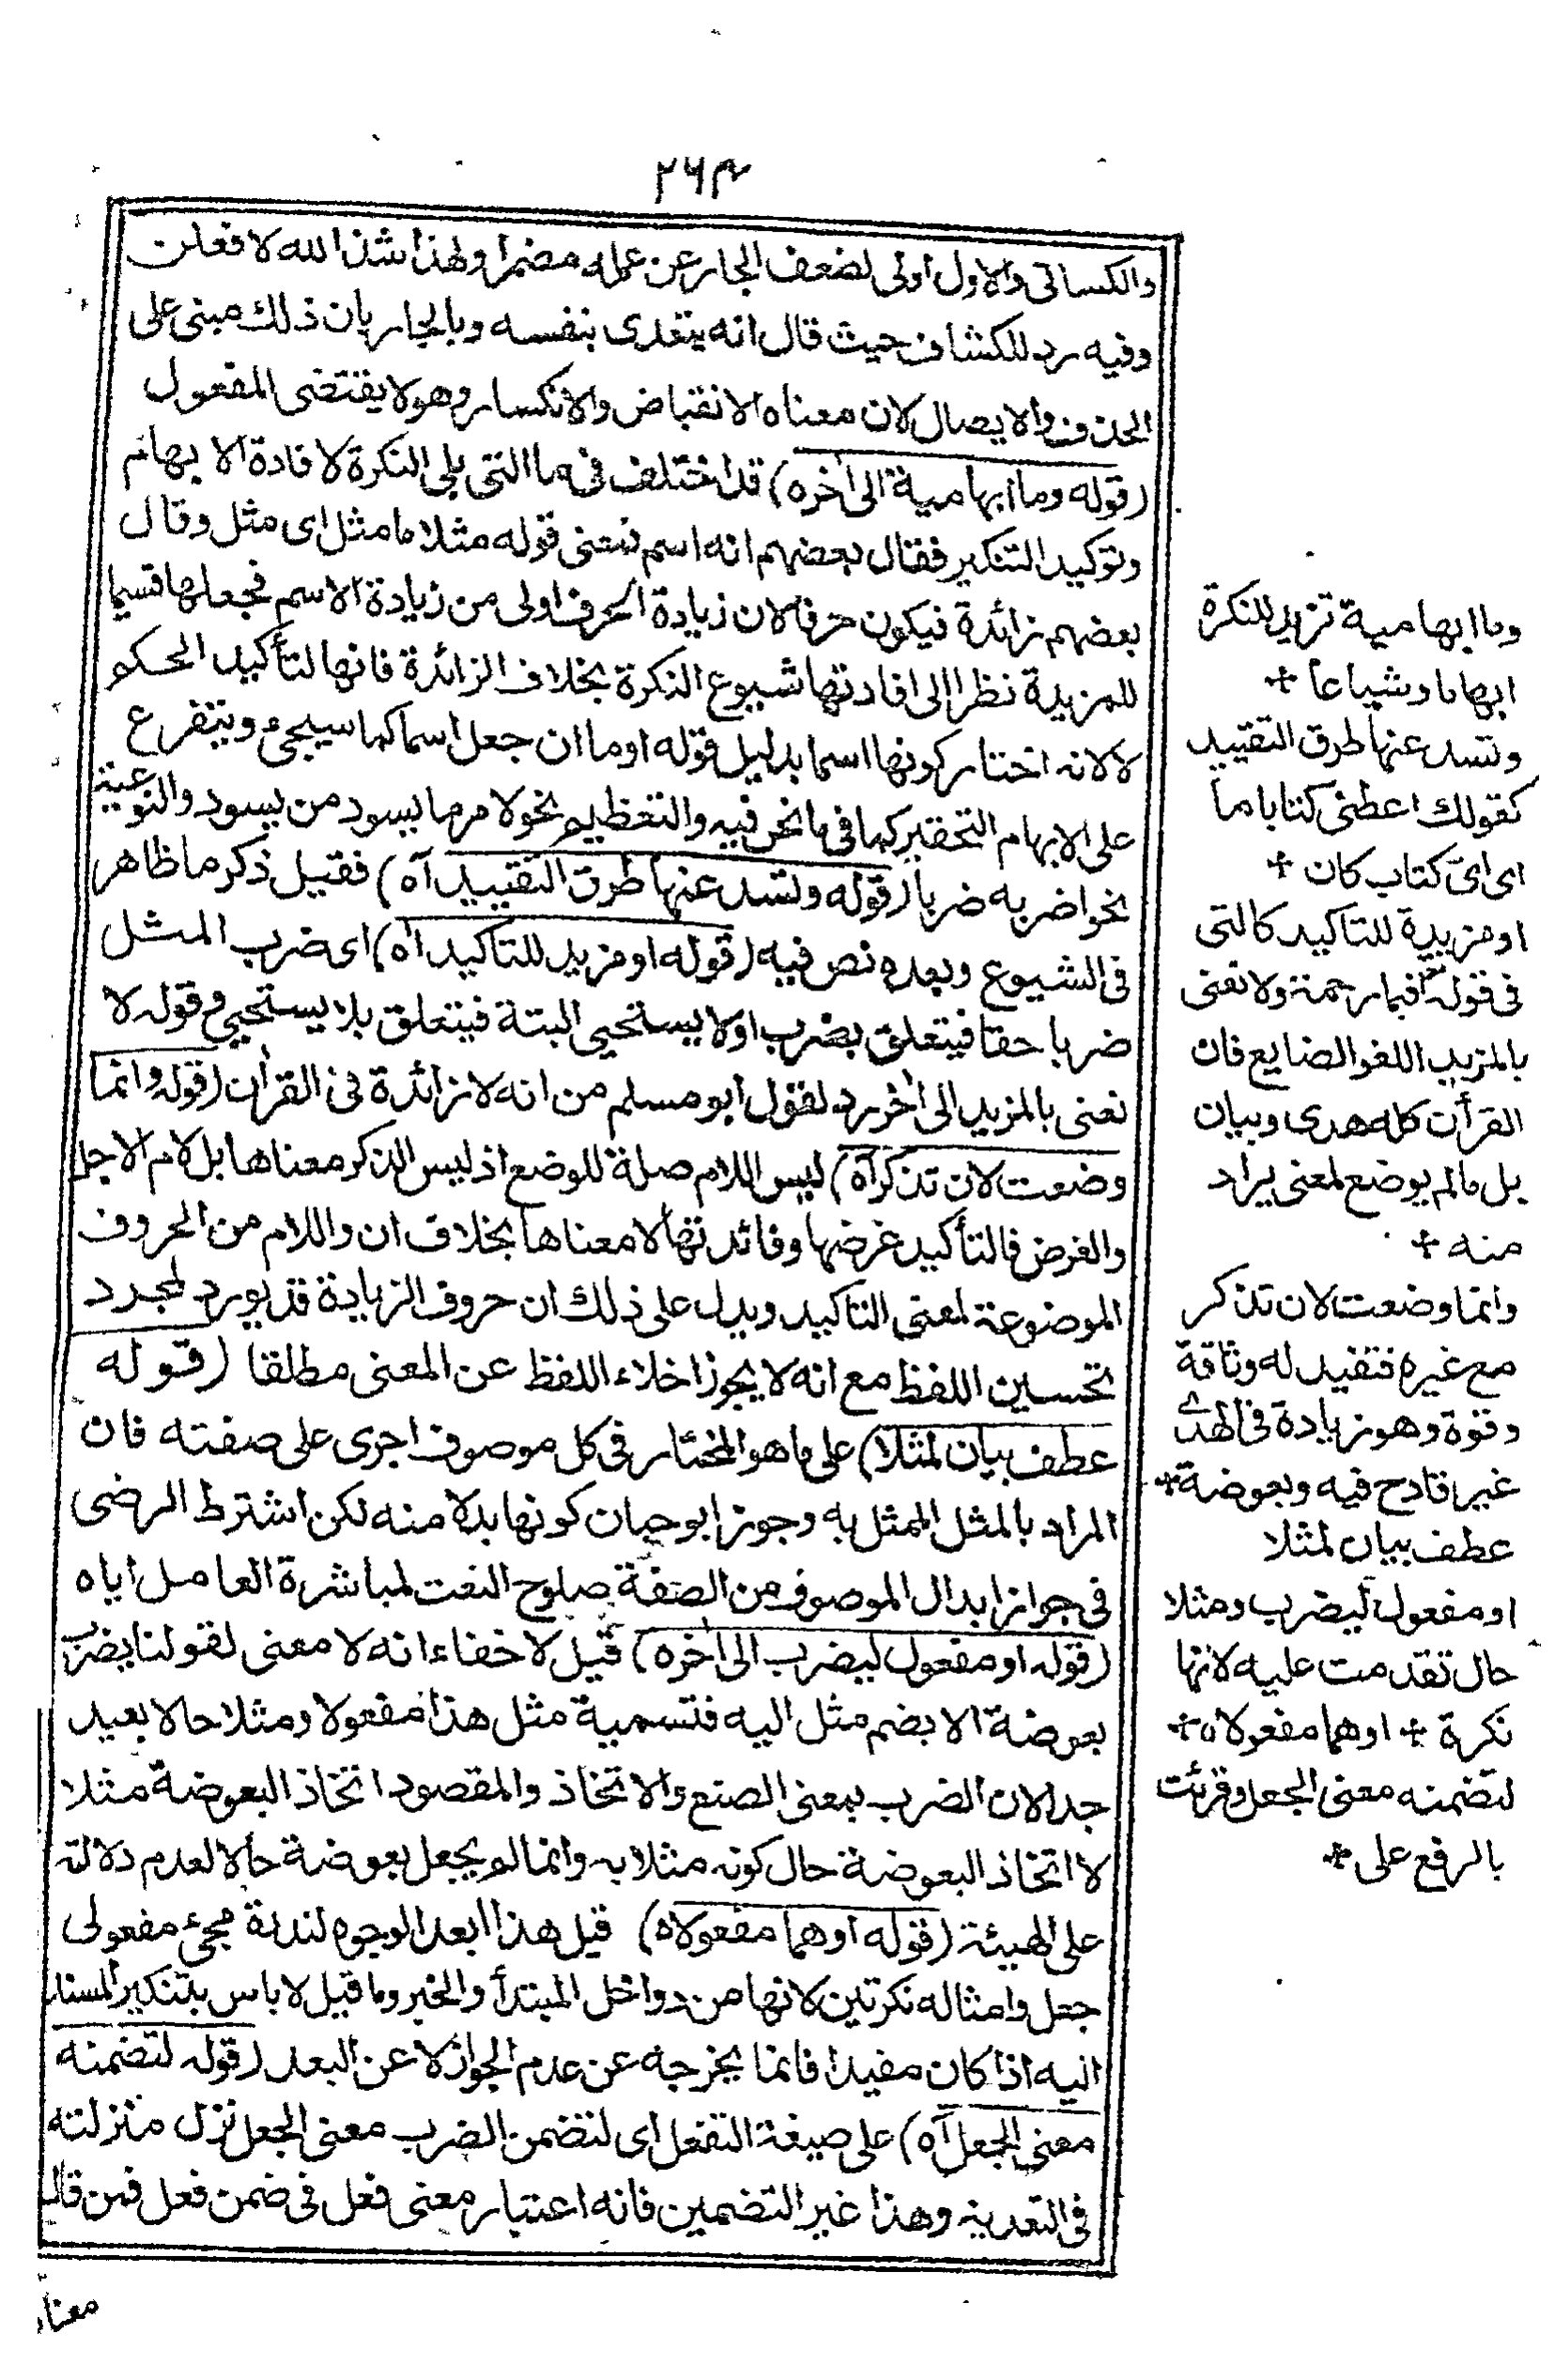 ٢٦٤
والكسائى والاول اولى لضعف الجار عن عمله مضمرا ولهذا شذ الله لافعلن
وفيه رد للكشاف حيث قال انه يتعدى بنفسه وبالجار بان ذلك مبنى على
الحذف والايصال لان معناه الانقباض والانكسار وهو لا يقتضى المفعول
(قوله وما ابهامية الى اخره) قد اختلف فى ما التى يلى النكرة لافادة الابهام
وتوكيد التنكير فقال بعضهم انه اسم فمعنى قوله مثلا ما مثل اى مثل وقال
بعضهم زائدة فيكون حرفا لان زيادة الحرف اولى من زيادة الاسم فجعلها قسيما
للمزيدة نظرا الى افادتها شيوع النكرة بخلاف الزائدة فانها لتأكيد الحكم
لا لانه اختار كونها اسما بدليل قوله او ما ان جعل اسما كما سيجىء ويتفرع
على الابهام التحقير كما فى ما نحن فيه والتعظيم نحو لامر ما يسود من يسود والنوعية
نحو اضربه ضربا (قوله وتسد عنها طرق التقييد آه) فقيل ذكر ما ظاهر
فى الشيوع وبعده نص فيه (قوله او مزيد للتاكيد آه) اى ضرب المثل
ضربا حقا فيتعلق بضرب او لا يستحيى البتة فيتعلق بلا يستحيى وقوله لا
نعنى بالمزيد الى اخر رد لقول ابو مسلم من انه لا زائدة فى القرأن (قوله وانما
وضعت لان تذكر آه) ليس اللام صلة للوضع اذ ليس الذكر معناها بل لام الاجل
والغرض فالتأكيد غرضها وفائدتها لا معناها بخلاف ان واللام من الحروف
الموضوعة لمعنى التاكيد ويدل على ذلك ان حروف الزيادة قد يورد لمجرد
تحسين اللفظ مع انه لا يجوز اخلاء اللفظ عن المعنى مطلقا (قوله
عطف بيان لمثلا) على ما هو المختار فى كل موصوف اجرى على صفته فان
المراد بالمثل الممثل به وجوز ابو حيان كونها بدلا منه لكن اشترط الرضى
فى جواز ابدال الموصوف من الصفة صلوح النعت لمباشرة العامل اياه
(قوله او مفعول ليضرب الى اخره) قيل لا خفاء انه لا معنى لقولنا يضرب
بعوضة الا بضم مثل اليه فتسمية مثل هذا مفعولا ومثلا حالا بعيد
جدا لان الضرب بمعنى الصنع والاتخاذ والمقصود اتخاذ البعوضة مثلا
لا اتخاذ البعوضة حال كونه مثلا به وانما لم يجعل بعوضة حالا لعدم دلالته
على الهيئة (قوله او هما مفعولاه) قيل هذا ابعد الوجوه لندرة مجئ مفعولى
جعل وامثاله نكرتين لانها من دواخل المبتدأ والخبر وما قيل لا باس بتنكير المسند
اليه اذا كان مفيدا فانما يخرجه عن عدم الجواز لا عن البعد (قوله لتضمنه
معنى الجعل آه) على صيغة التفعل اى لتضمن الضرب معنى الجعل نزل منزلته
فى التعدية وهذا غير التضمين فانه اعتبار معنى فعل فى ضمن فعل فمن قال
معناه
وما ابهامية تزيد للنكرة
ابهاما وشياعا +
وتسد عنها طرق التقييد
كقولك اعطنى كتابا ما
اى اى كتاب كان +
او مزيدة للتاكيد كالتى
فى قوله فبما رحمة ولا نعنى
بالمزيد اللغو الضايع فان
القرأن كله هدى وبيان
بل ما لم يوضع لمعنى يراد
منه +
وانما وضعت لان تذكر
مع غيره فتفيد له وثاقة
وقوة وهو زيادة فى الهدى
غير قادح فيه وبعوضة +
عطف بيان لمثلا
او مفعول ليضرب ومثلا
حال تقدمت عليه لانها
نكرة + او هما مفعولاه +
لتضمنه معنى الجعل وقرئت
بالرفع على +